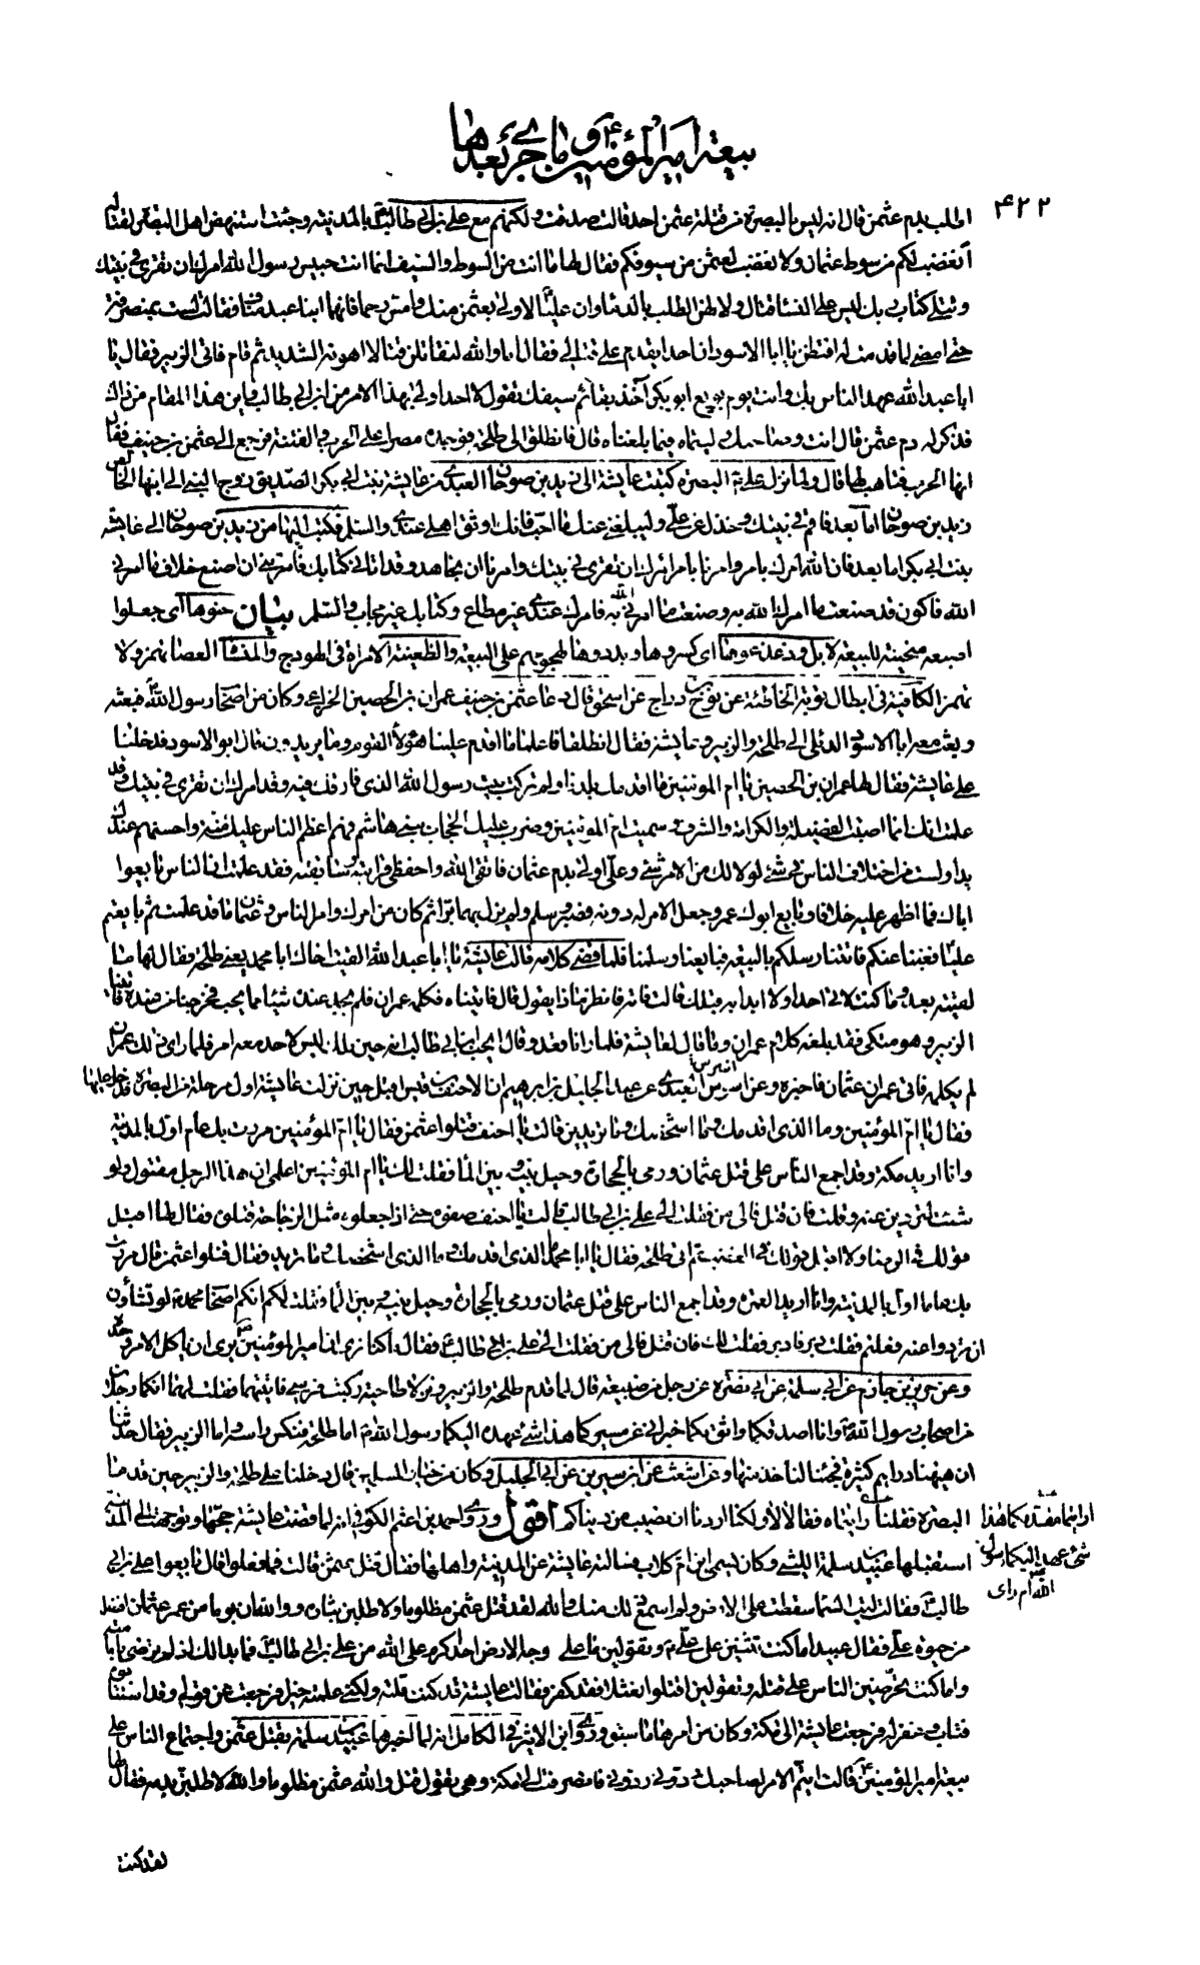 بيعة أمير المؤمنين ع وما جرى بعدها
۴۲۲
اطلب بدم عثمن قال انه ليس بالبصرة من قتلة عثمن احد قالت صدقت ولكنهم مع علي بن ابي طالب بالمدينة وجئت استنهض اهل البصرة لقتاله
أنغضب لكم من سوط عثمان ولا نغضب لعثمن من سيوفكم فقال لها ما انت من السوط والسيف انما انت حبيس رسول الله امرك ان تقري في بيتك
وتتلي كتاب ربك ليس على النساء قتال ولا لهن الطلب بالدماء وان عليا لاولى بعثمن منك وامس رحما فانهما ابنا عبد مناف فقالت لست بمنصرفة
حتى امضي لما قدمت له افتظن يا ابا الاسود ان احدا يقدم على قتالي فقال اما والله لتقاتلن قتالا اهونه الشديد ثم قام فاتى الزبير فقال يا
ابا عبد الله عهد الناس بك وانت يوم بويع ابو بكر آخذ بقائم سيفك تقول لا احد اولى بهذا الامر من ابن ابي طالب واين هذا المقام من ذاك
فذكر له دم عثمن قال انت وصاحبك وليتماه فيما بلغنا قال فانطلق الى طلحة فوجده مصرا على الحرب والفتنة فرجع الى عثمن بن حنيف فقال
انها الحرب فتاهب لها قال ولما نزل علي ع البصرة كتبت عايشة الى زيد بن صوحان العبدي من عايشة بنت ابي بكر الصديق زوج النبي الى ابنها الخالص
زيد بن صوحان اما بعد فاقم في بيتك وخذل عن علي وليبلغني عنك ما احب فانك اوثق اهلي عندي والسلم فكتب اليها من زيد بن صوحان الى عايشة
بنت ابي بكر اما بعد فان الله امرك بامر وامرنا بامر امرك ان تقري في بيتك وامرنا ان نجاهد وقد اتاني كتابك فامرتني ان اصنع خلاف ما امرني
الله فاكون قد صنعت ما امرك الله به وصنعت ما امرني الله به فامرك عندي غير مطاع وكتابك غير مجاب والسلم بيان حنوها اي جعلوا
اصبعه منحنية للبيعة لا بل ودعدعوها اي كسروها وبددوها لهجومهم على البيعة والظعينة الامراة في الهودج والمنشأ العصا نمر ولا
نمر الكافية في ابطال توبة الخاطئة عن نوح بن دراج عن اسحق قال دعا عثمن بن حنيف عمران بن الحصين الخزاعي وكان من اصحاب رسول الله فبعثه
وبعث معه ابا الاسود الدئلي الى طلحة والزبير وعايشة فقال انطلقا فاعلما ما اقدم علينا هؤلاء القوم وما يريدون قال ابو الاسود فدخلنا
على عايشة فقال لها عمران بن الحصين يا ام المؤمنين ما اقدمك بلدنا ولم تركت بيت رسول الله الذي فارقك فيه وقد امرك ان تقري في بيتك وقد
علمت انك انما اصبت الفضيلة والكرامة والشرف وسميت ام المؤمنين وضرب عليك الحجاب ببني هاشم فهم اعظم الناس عليك منة واحسنهم عندك
يدا ولست من اختلاف الناس في شئ لا لك من الامر شئ وعلي اولى بدم عثمان فاتقي الله واحفظي قرابته وسابقته فقد علمت ان الناس بايعوا
اباك فما اظهر عليه خلافا وبايع ابوك عمر وجعل الامر له دونه فصبر وسلم ولم يزل بهما برا ثم كان من امرك وامر الناس وعثمان ما قد علمت ثم بايعتم
عليا فغبنا عنكم فاتتنا رسلكم بالبيعة فبايعنا وسلمنا فلما قضى كلامه قالت عايشة يا ابا عبد الله القيت اخاك ابا محمد يعني طلحة فقال لها ما
لقيته بعد وما كنت لاتي احدا ولا ابدأ به قبلك قالت فاته فانظر ماذا يقول قال فاتيناه فكلمه عمران فلم يجد عنده شيئا مما يحب فخرجنا من عنده فاتينا
الزبير وهو متكئ وقد بلغه كلام عمران وما قال لعايشة فلما رآنا قعد وقال ايحسب ابن ابي طالب انه حين ملك ليس لاحد معه امر فلما راى ذلك عمران
لم يكلمه فاتى عمران عثمان فاخبره وعن اشرس العبدي عن عبد الجليل بن ابراهيم ان الاحنف بن قيس اقبل حين نزلت عايشة اول مرحلة من البصرة فدخل عليها
فقال يا ام المؤمنين وما الذي اقدمك وما اشخصك وما تريدين قالت يا احنف قتلوا عثمن فقال يا ام المؤمنين مررت بك عام اول بالمدينة
وانا اريد مكة وقد اجمع الناس على قتل عثمان ورمي بالحجارة وحيل بينه وبين الماء فقلت لك يا ام المؤمنين اعلمي ان هذا الرجل مقتول ولو
شئت لتردين عنه وقلت فان قتل فالى من فقلت الى علي بن ابي طالب قالت يا احنف صفوه حتى اذا جعلوه مثل الزجاجة قتلوه فقال لها اقبل
قولك في الرضا ولا اقبل قولك في الغضب ثم اتى طلحة فقال يا ابا محمد ما الذي اقدمك وما الذي اشخصك وما تريد فقال قتلوا عثمن قال مررت
بك عاما اول بالمدينة وانا اريد العمرة وقد اجمع الناس على قتل عثمان ورمي بالحجارة وحيل بينه وبين الماء فقلت لكم انكم اصحاب محمد ص لو تشاؤن
ان تردوا عنه فعلتم فقلت دبر فادبر فقلت لك فان قتل فالى من فقلت الى علي بن ابي طالب ع فقال ما كنا نرى ان امير المؤمنين ع يرى ان ياكل الامر وحده
وعن جرير بن حازم عن ابي سلمة عن ابي نضرة عن رجل من ضبيعة قال لما قدم طلحة والزبير ونزلا طاحية ركبت فرسي فاتيتهما فقلت لهما انكما رجلان
من اصحاب رسول الله ص وانا اصدقكما واثق بكما خبراني عن مسيركما هذا شئ عهده اليكما رسول الله ص اما طلحة فنكس راسه واما الزبير فقال حدثنا
ان ههنا دراهم كثيرة فجئنا لناخذ منها وعن اشعث عن ابن سيرين عن ابي الجليل وكان من خيار المسلمين قال دخلنا على طلحة والزبير حين قدما
البصرة فقلنا ارايتماه فقالا لا ولكنا اردنا ان نصيب من دنياكم اقول وروى احمد بن اعثم الكوفي انه لما قضت عايشة حجتها وتوجهت الى المدينة
ارايتما مقدمكما هذا
شئ عهد اليكما رسول
الله ام راي
استقبلها عبيد بن سلمة الليثي وكان يسمى ابن ام كلاب فسالته عايشة عن المدينة واهلها فقال قتل عثمن قالت فما فعلوا قال بايعوا علي بن ابي
طالب ع فقالت ليت السما سقطت على الارض ولم اسمع ذلك منك والله لقد قتل عثمن مظلوما ولاطلبن بثاره ووالله ان يوما من عمر عثمان افضل
من حيوة علي فقال عبيد اما كنت تثنين على علي ع وتقولين ما على وجه الارض احد اكرم على الله من علي بن ابي طالب ع فما بدا لك اذ لم ترضي بامامته
واما كنت تحرضين الناس على قتله وتقولين اقتلوا نعثلا فقد كفر فقالت عايشة قد كنت قلته ولكني علمته خيرا فرجعت عن قولي وقد استتابوه
فتاب وغفر له فرجعت عايشة الى مكة وكان من امرها ما ستو وروى ابن الاثير في الكامل انه لما اخبرها عبيد بن سلمة بقتل عثمن واجتماع الناس على
بيعة امير المؤمنين ع قالت ايتم الامر لصاحبك ردوني ردوني فانصرفت الى مكة وهي تقول قتل والله عثمن مظلوما والله لاطلبن بدمه فقال لها
لقد كنت